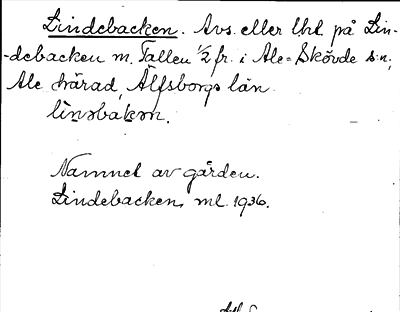 Lindebacken. Avs. eller lht. på Lin-
-debacken m. Tallen 1/2 fr. i Ale-Skövde s:n,
Ale härad, Älfsborgs län.
linəbakən.
Namnet av gården.
Lindebacken ml. 1936.